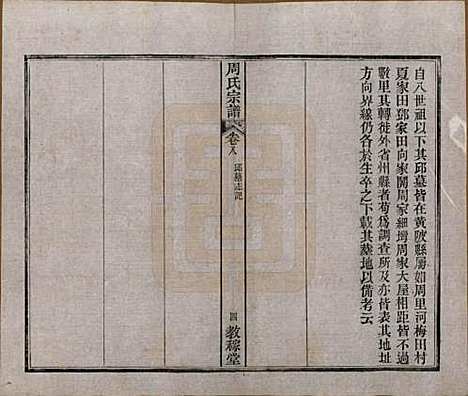 自八世祖以下其邱墓皆在黃陂縣屬如周里河梅田村
夏家田邱家田向家園周家細塆周家大屋相距皆不過
數里其轉徙外省州縣者苟為調查所及亦皆表其地址
方向界線仍各於生卒之下載其墓地以備考云
周氏宗譜
卷八
邱墓志記
四
敦稼堂